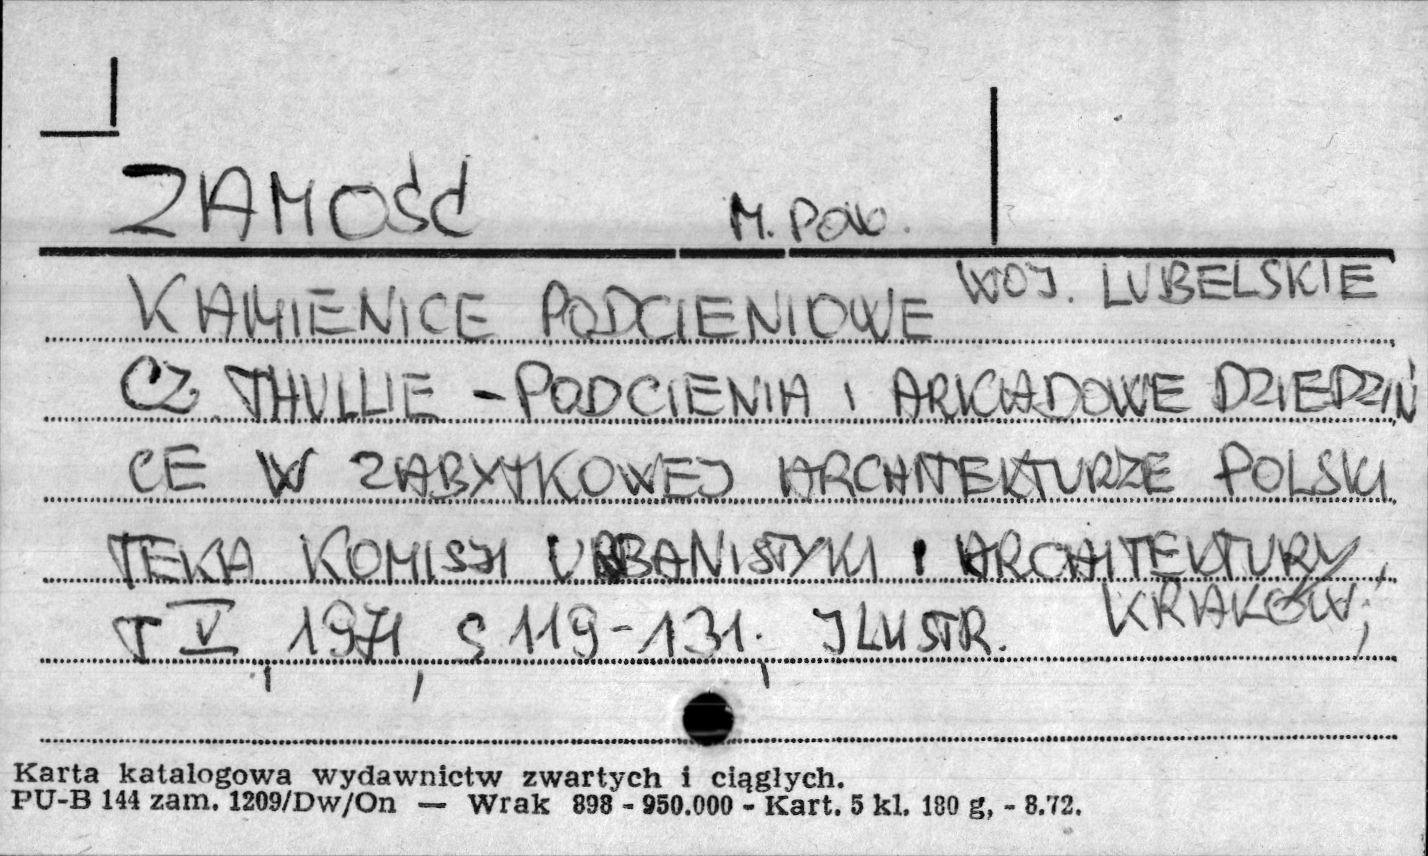 ZAMOŚĆ M. POW.
WOJ. LUBELSKIE
KAMIENICE PODCIENIOWE
CZ. THULLIE - PODCIENIA I ARKADOWE DZIEDZIŃ
CE W ZABYTKOWEJ ARCHITEKTURZE POLSKI
TEKA KOMISJI URBANISTYKI I ARCHITEKTURY,
KRAKÓW,
T V, 1971, S 119-131. ILUSTR.
Karta katalogowa wydawnictw zwartych i ciągłych.
PU-B 144 zam. 1209/Dw/On — Wrak 898 - 950.000 - Kart. 5 kl. 180 g, - 8.72.